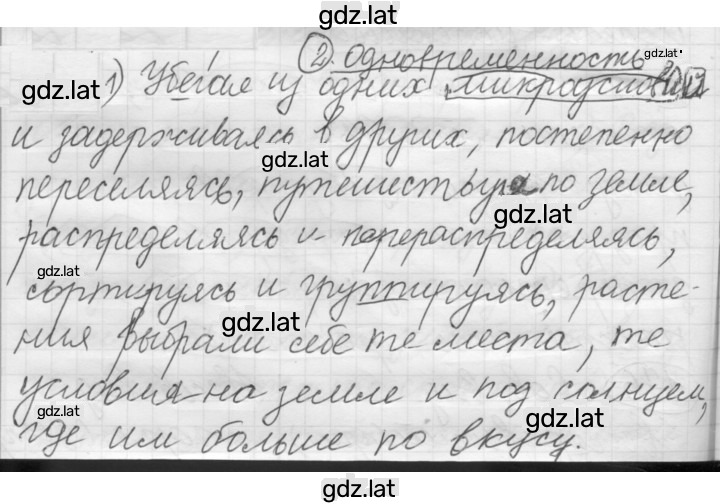 gdz.lat
2. одновременность gdz.lat
gdz.lat 1) Убегая из одних микроусловий
и задерживаясь в других, постепенно
gdz.lat
переселяясь, путешествуя по земле,
gdz.lat
распределяясь и перераспределяясь,
gdz.lat
сортируясь и группируясь, расте-
gdz.lat
ния выбрали себе те места, те
условия на земле и под солнцем,
gdz.lat gdz.lat
где им больше по вкусу.
gdz.lat